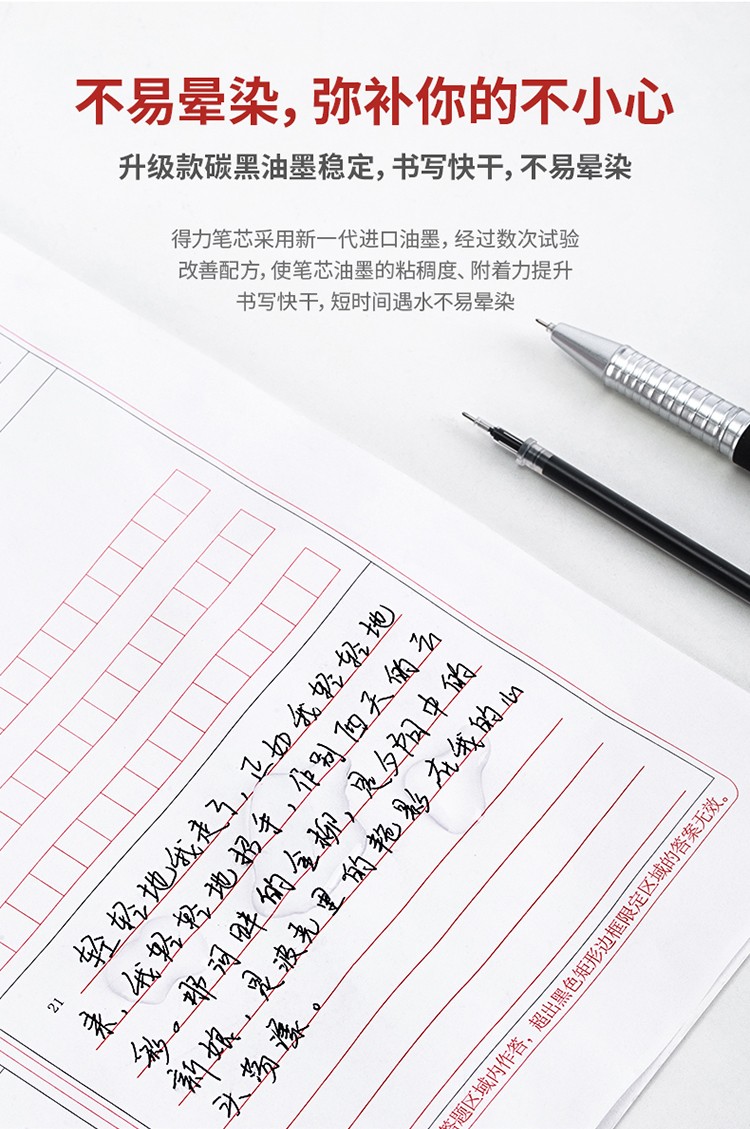 不易晕染，弥补你的不小心
升级款碳黑油墨稳定，书写快干，不易晕染
得力笔芯采用新一代进口油墨，经过数次试验
改善配方，使笔芯油墨的粘稠度、附着力提升
书写快干，短时间遇水不易晕染
21
轻轻地我走了，正如我轻轻地
来，我轻轻地招手，作别西天的云
彩。那河畔的金柳，是夕阳中的
新娘，是波光里的艳影在我的心
头荡漾。
答题区域内作答，超出黑色矩形边框限定区域的答案无效。